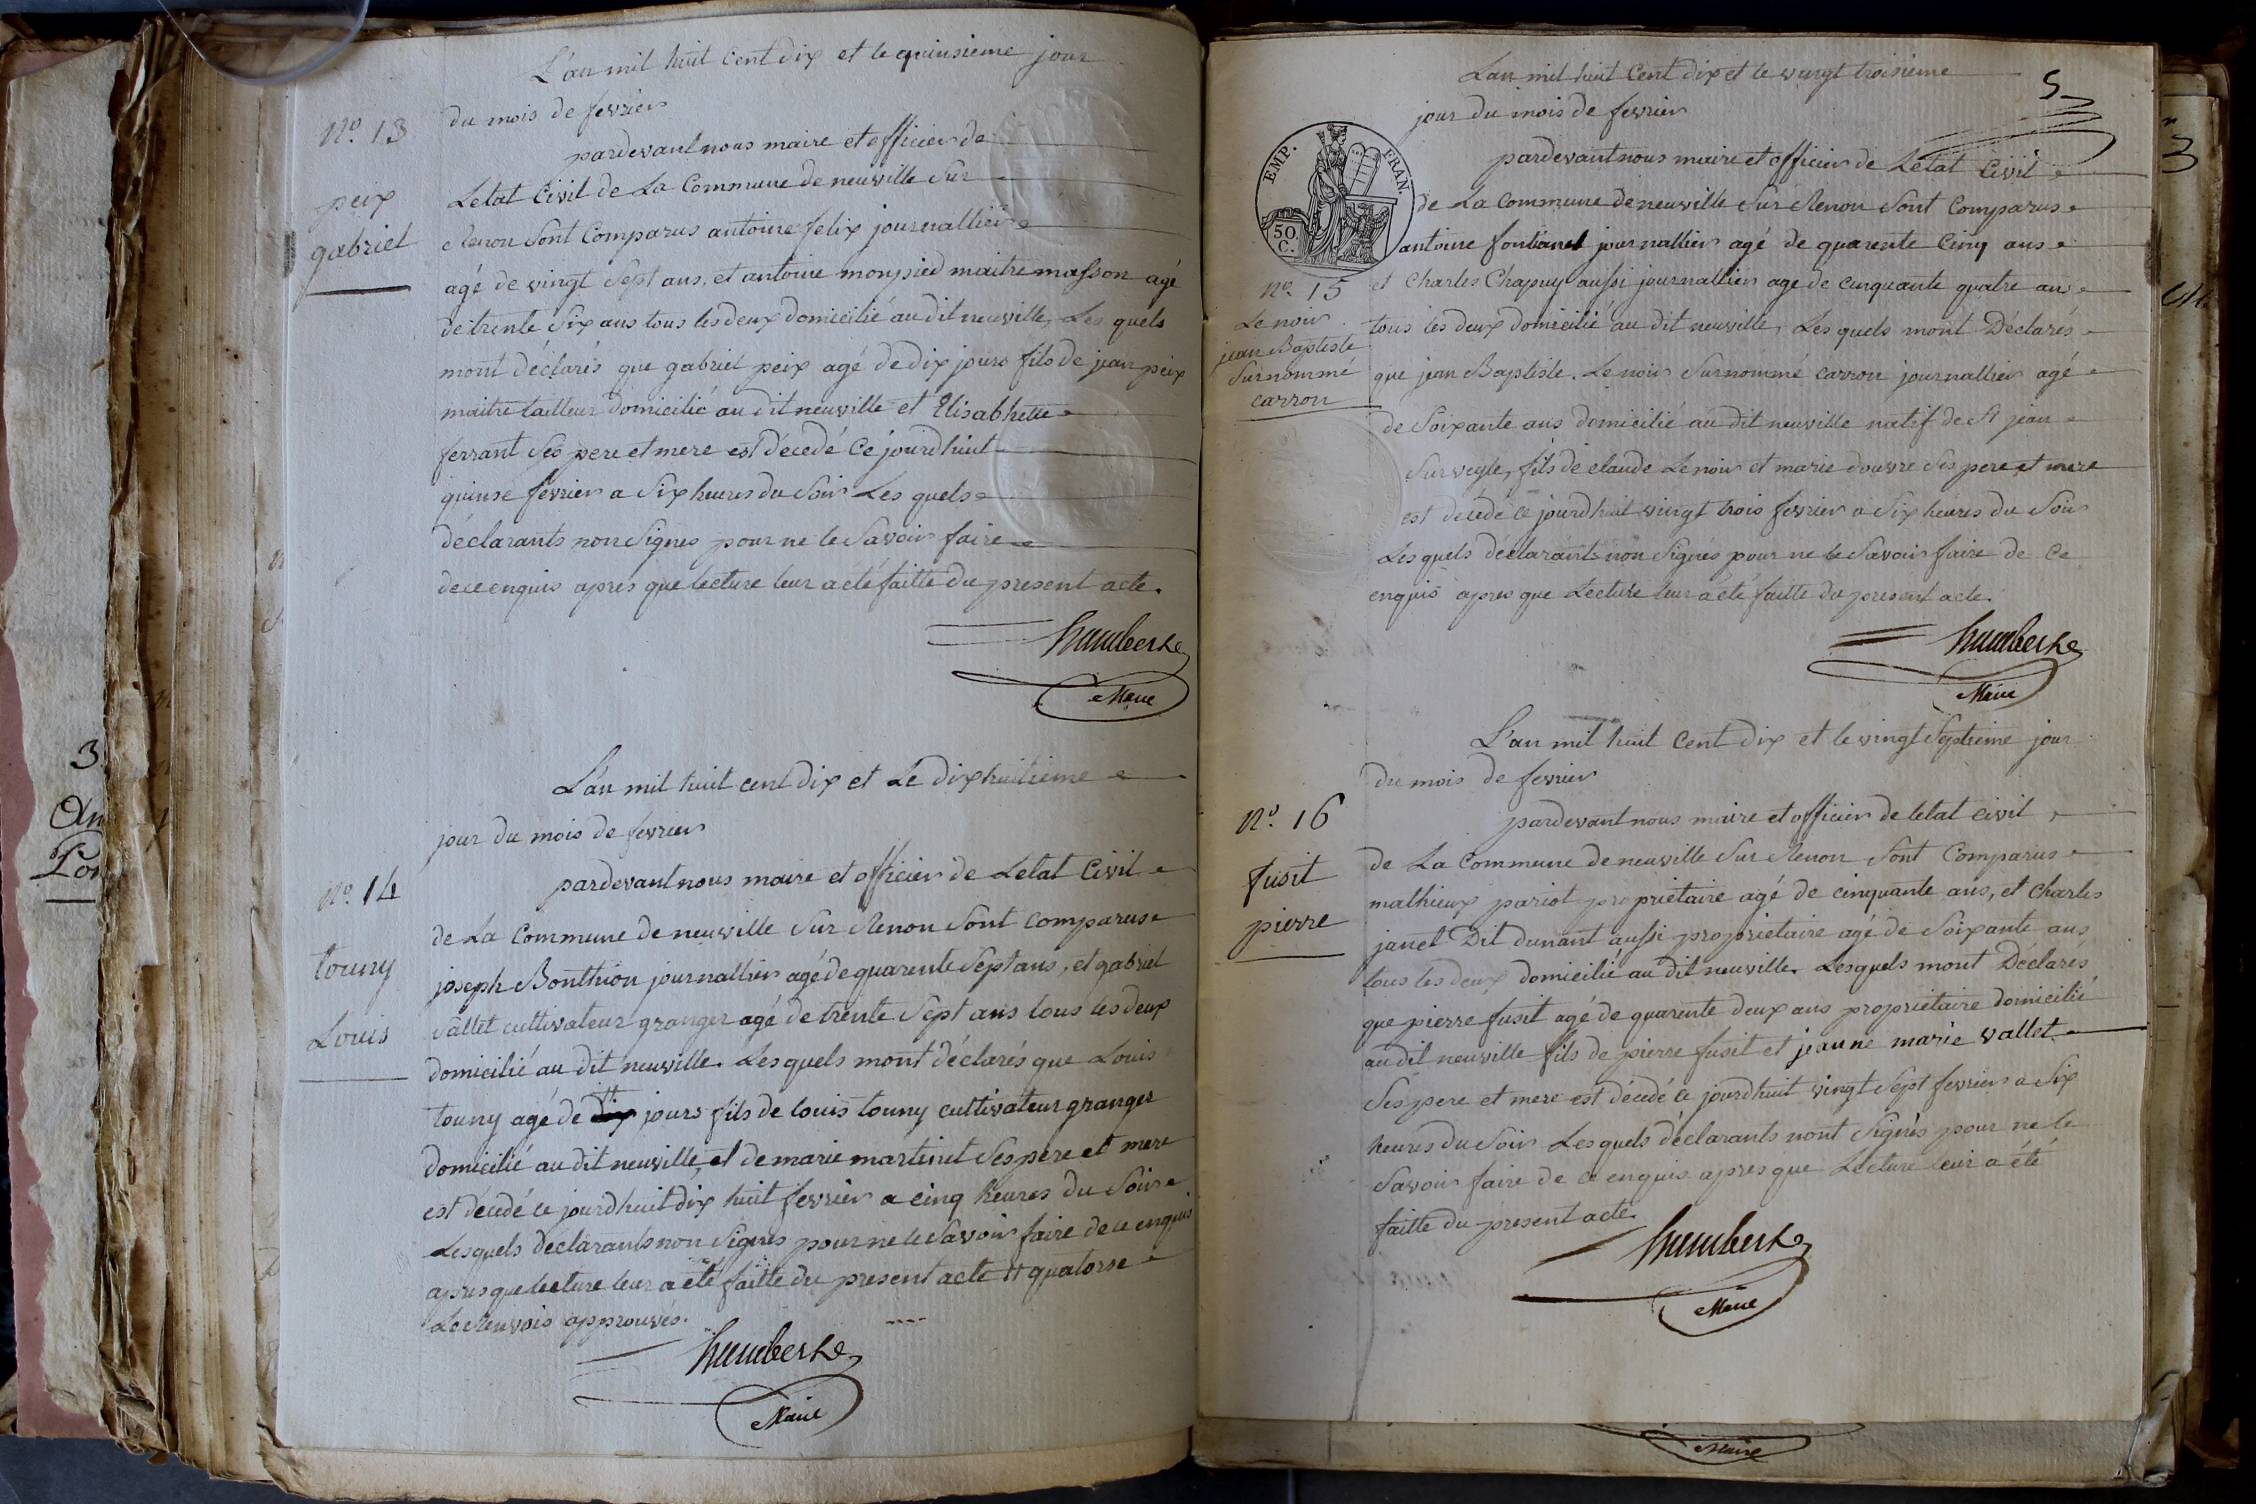 L'an mil huit Cent dix et le quinsieme jour
du mois de fevrier
N.º 13
pardevant nous maire et officier de
Letat Civil de La Commune de neuville Sur
peix
Renon Sont Comparus antoine felix journallier
gabriel
agé de vingt Sept ans, et antoine monpied maitre masson agé
de trente Six ans tous les deux domicilié au dit neuville, Les quels
mont déclarés que gabriel peix agé de dix jours fils de jean peix
maitre tailleur domicilié au dit neuville et Elisabhette
ferrant Ses pere et mere est décedé Ce jourdhuit
quinse fevrier a Six heures du Soir Les quels
déclarants non Signes pour ne le Savoir faire
de ce enquis apres que lecture leur a eté faitte du present acte.
humbert
Maire
L'an mil huit cent dix et Le dix huitieme
jour du mois de fevrier
pardevant nous maire et officier de Letat Civil
N.º 14
de La Commune de neuville Sur Renon Sont comparus
touny
joseph Bonthion journallier agé de quarente Sept ans, et gabriel
Louis
Sallet cultivateur granger agé de trente Sept ans tous les deux
domicilié au dit neuville. Les quels mont déclarés que Louis
touny agé de dix jours fils de louis touny cultivateur granger
domicilié au dit neuville, et de marie martinet Ses pere et mere
est décedé ce jourdhuit dix huit fevrier a cinq heures du Soir
Lesquels declarants non Signes pour ne le Savoir faire de ce enquis
apres que lecture leur a eté faitte du present acte # quatorse
Le Renvois approuvés.
humbert
Maire
5
Lan mil huit Cent dix et le vingt troisieme
jour du mois de fevrier
EMP. FRAN.
50 C.
pardevant nous maire et officier de Letat Civil
de La Commune de neuville Sur Renon Sont Comparus
antoine fontanel journallier agé de quarente Cinq ans
et Charles Chapuy aussi journallier agé de cinquante quatre ans
N.º 15
Le noir
jean Baptiste
Surnommé
carron
tous les deux domicilié au dit neuville, Les quels mont Déclarés
que jean Baptiste. Le noir Surnommé carron journallier agé
de Soixante ans domicilié au dit neuville natif de St jean
Sur veyle, fils de claude Le noir et marie douvre Ses pere et mere
est décedé ce jourdhuit vingt trois fevrier a Six heures du Soir
Les quels déclarants non Signés pour ne le Savoir faire de Ce
enquis apres que Lecture leur a eté faitte du present acte.
humbert
Maire
L'an mil huit Cent dix et le vingt Septieme jour
du mois de fevrier
N.º 16
pardevant nous maire et officier de letat civil
de La Commune de neuville Sur Renon Sont Comparus
fusit
pierre
mathieux pariot propriétaire agé de cinquante ans, et Charles
janet Dit dunant aussi propriétaire agé de Soixante ans
tous les deux domicilié au dit neuville. Lesquels mont Déclarés
que pierre fusit agé de quarente deux ans propriétaire domicilié
au dit neuville fils de pierre fusit et jeanne marie vallet
Ses pere et mere est décedé ce jourdhuit vingt Sept fevrier a Six
heures du Soir Les quels déclarants nont Signés pour ne le
Savoir faire de ce enquis apres que Lecture leur a été
faitte du present acte.
humbert
Maire
Maire